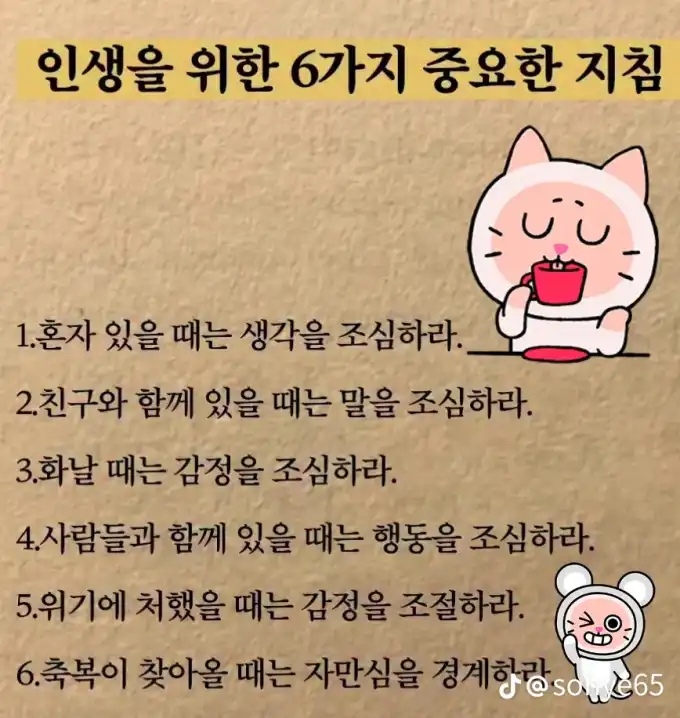 인생을 위한 6가지 중요한 지침
1.혼자 있을 때는 생각을 조심하라.
2.친구와 함께 있을 때는 말을 조심하라.
3.화날 때는 감정을 조심하라.
4.사람들과 함께 있을 때는 행동을 조심하라.
5.위기에 처했을 때는 감정을 조절하라.
6.축복이 찾아올 때는 자만심을 경계하라